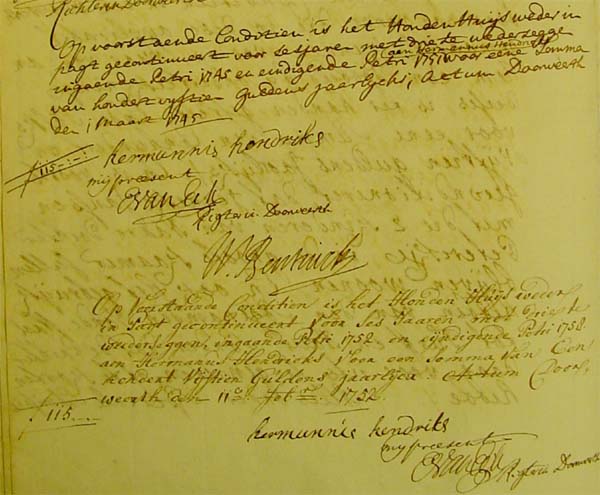 Rigter in Doorwerth
Op voorstaende Conditien is het Honden Huijs weder in
pagt gecontinueert voor ses jaren met drie te wederseggen
aen Hermannus Hendriks
ingaende Petri 1745 en eindigende Petri 1751 voor eene Somma
van hondert vijftien Guldens jaerlijchs, Actum Doorwerth
den 1 Maart 1745
f 115-:-:-
hermannis hendriks
mij present
E van Eck
Rigter in Doorwerth
W. Bentinck
Op Voorstaande Condition is het Honden Huijs weder
in Pagt gecontinueert Voor Ses Jaaren met Drie te
wederseggen, ingaande Petri 1752 en Eijndigende Petri 1758
aen Hermanus Hendricks Voor een Somma Van Een
hondert Vijftien Guldens jaarlijcx. Actum Door,
weerth den 11e febr. 1752.
f 115-:-
hermannis hendriks
mij present
E van Eck Rigter in Doorwerth